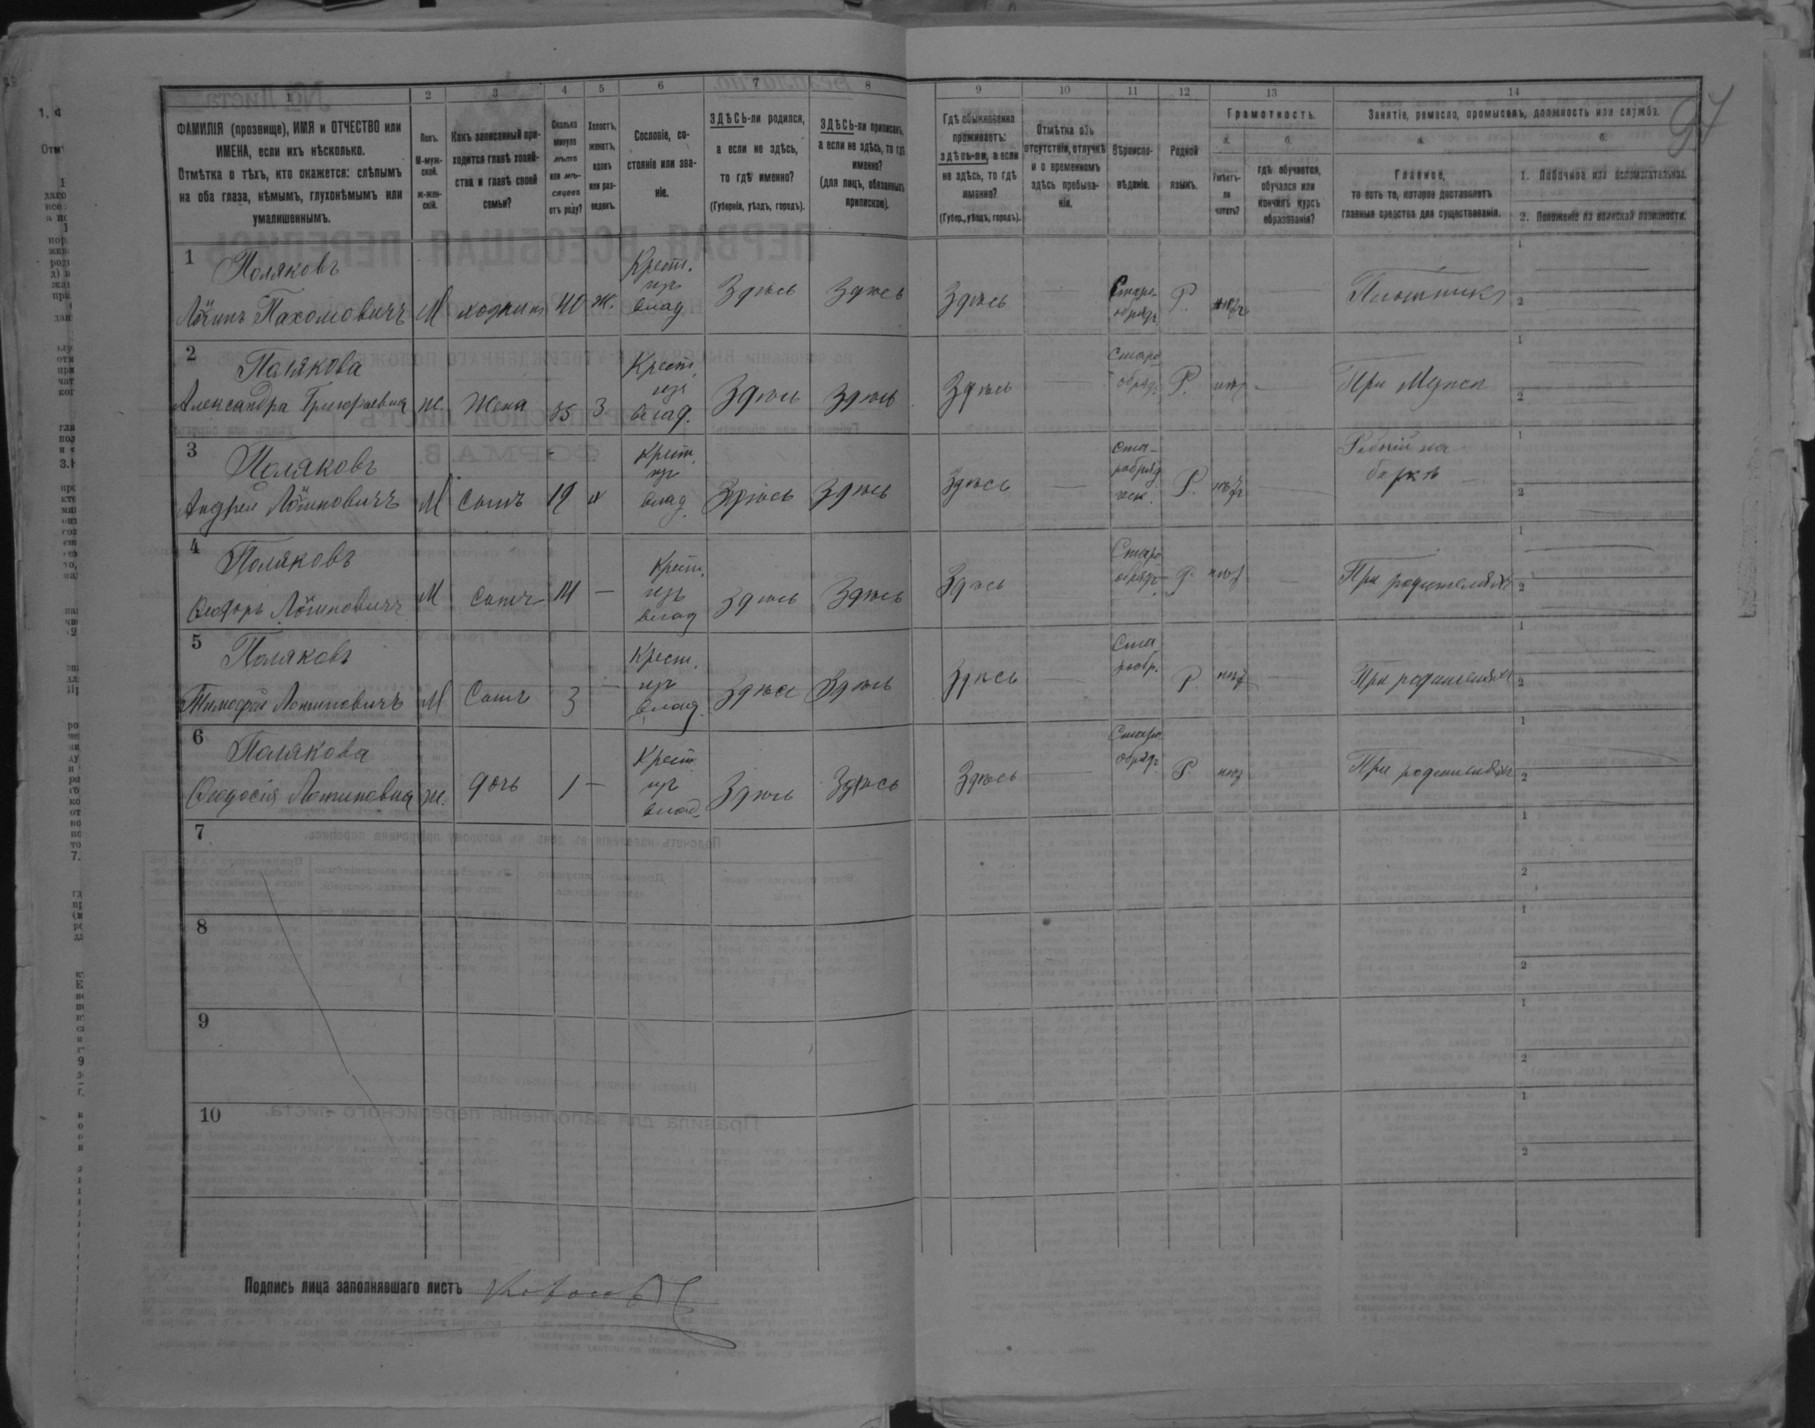 1 2 3 4 5 6 7 8 9 10 11 12 13 14
97
ФАМИЛІЯ (прозвище), ИМЯ и ОТЧЕСТВО или
ИМЕНА, если ихъ нѣсколько.
Отмѣтка о тѣхъ, кто окажется: слѣпымъ
на оба глаза, нѣмымъ, глухонѣмымъ или
умалишеннымъ.
Полъ.
М-муж-
ской.
Ж-жен-
скій.
Какъ записанный при-
ходится главѣ хозяй-
ства и главѣ своей
семьи?
Сколько
минуло
лѣтъ
или мѣ-
сяцевъ
отъ роду?
Холостъ,
женатъ,
вдовъ
или раз-
веденъ.
Сословіе, со-
стояніе или зва-
ніе.
ЗДѢСЬ-ли родился,
а если не здѣсь,
то гдѣ именно?
(Губернія, уѣздъ, городъ).
ЗДѢСЬ-ли приписанъ,
а если не здѣсь, то гдѣ
именно?
(для лицъ, обязанныхъ
припискою).
Гдѣ обыкновенно
проживаетъ:
здѣсь-ли, а если
не здѣсь, то гдѣ
именно?
(Губер., уѣздъ, городъ).
Отмѣтка объ
отсутствіи, отлучкѣ
и о временномъ
здѣсь пребыва-
ніи.
Вѣроиспо-
вѣданіе.
Родной
языкъ.
Грамотность.
а.
Умѣетъ-
ли
читать?
б.
гдѣ обучается,
обучался или
кончилъ курсъ
образованія?
Занятіе, ремесло, промыселъ, должность или служба.
а.
Главное,
то есть то, которое доставляетъ
главныя средства для существованія.
б.
1. Побочное или вспомогательное.
2. Положеніе по воинской повинности.
1 Поляковъ
Логинъ Пахомовичъ М хозяинъ 40 ж. Крест. изъ влад. Здѣсь Здѣсь Здѣсь — Старо-обряд. Р. нѣтъ — Плотникъ 1 2
2 Полякова
Александра Григорьевна ж. Жена 35 З Крест. изъ влад. Здѣсь Здѣсь Здѣсь — Старообряд. Р. нѣтъ — При мужѣ 1 2
3 Поляковъ
Андрей Логиновичъ М Сынъ 19 х Крест. изъ влад. Здѣсь Здѣсь Здѣсь — Ста-рообряд Р. нѣтъ — Рабочій на 1 2
4 Поляковъ
Ѳеодоръ Логиновичъ М Сынъ 14 — Крест. изъ влад Здѣсь Здѣсь Здѣсь — Старообряд. Р. нѣтъ — При родителяхъ 1 2
5 Поляковъ
Тимофей Логиновичъ М Сынъ 3 — Крест. изъ влад. Здѣсь Здѣсь Здѣсь — Старообр. Р. нѣтъ — При родителяхъ 1 2
6 Полякова
Ѳеодосія Логиновна ж. дочь 1 — Крест. изъ влад. Здѣсь Здѣсь Здѣсь — Старообряд. Р. нѣтъ При родителяхъ 1 2
7 1 2
8 1 2
9 1 2
10 1 2
Подпись лица заполнявшаго листъ